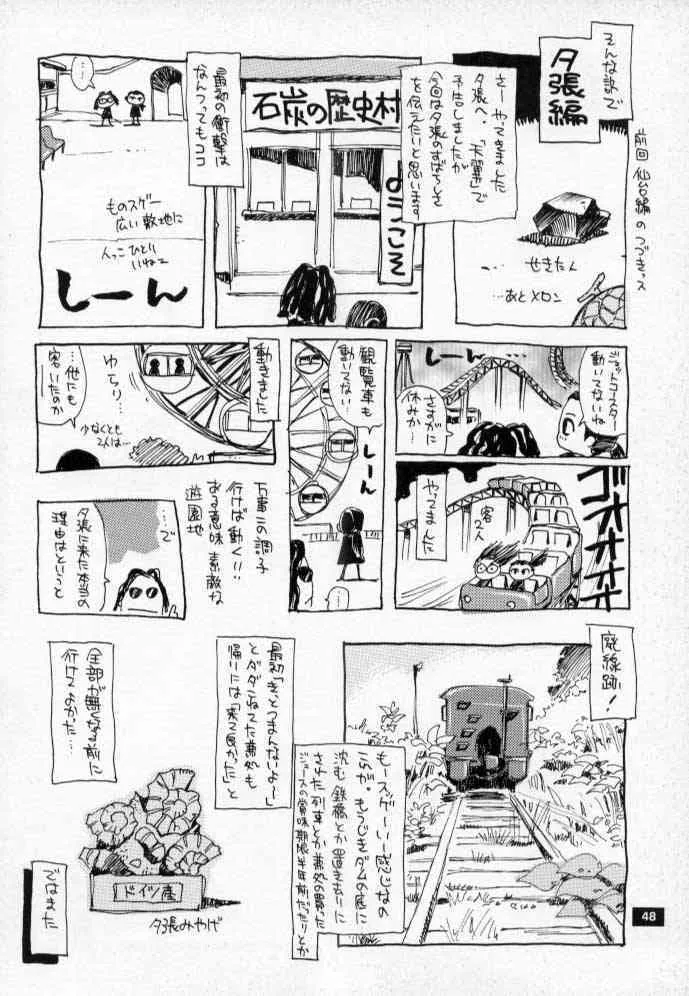 そんな訳で
夕張編
前回仙台編のつづきっス
さーやってきました
夕張へ。「天翼」で
予告しましたが
今回は夕張のすばらしさ
を伝えたいと思います
せきたん
…あとメロン
石炭の歴史村
ようこそ
最初の衝撃は
なんつってもココ
…
ものスゲー
広い敷地に
人っこひとり
いねェ
しーん
ジェットコースター
動いてないね
しーん
…
さすがに
休みか…
ゴオオオオオ
客2人
やってました
観覧車も
動いてない
しーん
…
動きました
ゆらり…
…他にも
客いたのか
少なくとも
2人は…
万事この調子
行けば動く!!
ある意味素敵な
遊園地
…で
夕張に来た本当の
理由はというと
廃線跡!
もースゲーいー感じなの
これが。もうじきダムの底に
沈む鉄橋とか置き去りに
された列車とか兼処の買った
ジュースの賞味期限半年前だったりとか
最初「きっとつまんないよー」
とダダこねてた兼処も
帰りには「来て良かった」と
全部が無くなる前に
行けてよかった…
ドイツ産
夕張みやげ
ではまた
48